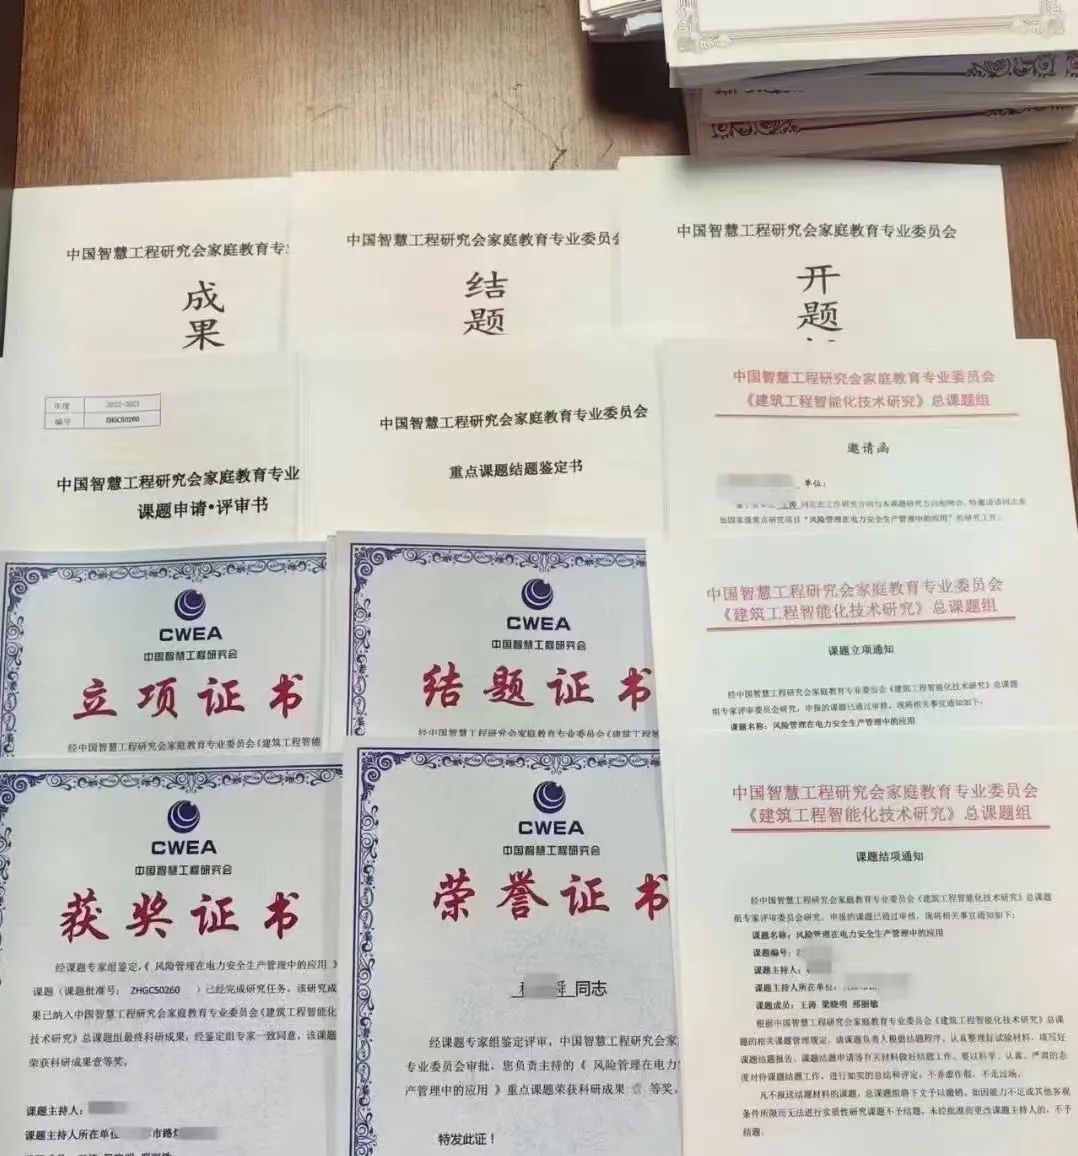 中国智慧工程研究会家庭教育专业
成
果
中国智慧工程研究会家庭教育专业委员会
结
题
中国智慧工程研究会家庭教育专业委员会
开
题
年度 2022-2023
编号 ZHGC50260
中国智慧工程研究会家庭教育专业
课题申请·评审书
中国智慧工程研究会家庭教育专业委员会
重点课题结题鉴定书
中国智慧工程研究会家庭教育专业委员会
《建筑工程智能化技术研究》总课题组
邀请函
单位：
同志在工作研究方向与本课题研究方向相吻合，特邀请该同志参
加国家级重点研究项目“风险管理在电力安全生产管理中的应用”的研究工作。
中国智慧工程研究会家庭教育专业委员会
《建筑工程智能化技术研究》总课题组
课题立项通知
经中国智慧工程研究会家庭教育专业委员会《建筑工程智能化技术研究》总课题
组专家评审委员会研究，申报的课题已通过审核，现将相关事宜通知如下：
课题名称：风险管理在电力安全生产管理中的应用
CWEA
中国智慧工程研究会
立项证书
经中国智慧工程研究会家庭教育专业委员会《建筑工程智能
CWEA
中国智慧工程研究会
结题证书
经中国智慧工程研究会家庭教育专业委员会《建筑工程智
CWEA
中国智慧工程研究会
获奖证书
经课题专家组鉴定，《 风险管理在电力安全生产管理中的应用 》
课题（课题批准号： ZHGC50260 ）已经完成研究任务，该研究成
果已纳入中国智慧工程研究会家庭教育专业委员会《建筑工程智能化
技术研究》总课题组最终科研成果，经鉴定组专家一致同意，该课题
荣获科研成果壹等奖。
课题主持人：
课题主持人所在单位 市路
CWEA
中国智慧工程研究会
荣誉证书
舜 同志
经课题专家组鉴定评审，中国智慧工程研究会家
专业委员会审批，您负责主持的《 风险管理在电力
产管理中的应用 》重点课题荣获科研成果 壹 等奖。
特发此证！
中国智慧工程研究会家庭教育专业委员会
《建筑工程智能化技术研究》总课题组
课题结项通知
经中国智慧工程研究会家庭教育专业委员会《建筑工程智能化技术研究》总课题
组专家评审委员会研究，申报的课题已通过审核，现将相关事宜通知如下：
课题名称：风险管理在电力安全生产管理中的应用
课题编号：
课题主持人：
课题主持人所在单位：
课题成员：王海 梁晓明 邢丽敏
根据中国智慧工程研究会家庭教育专业委员会《建筑工程智能化技术研究》总课
题的相关课题管理规定，请课题负责人根据结题程序，认真整理好试验材料，填写好
课题结题报告、课题结题申请等有关材料做好结题工作。要以科学、认真、严肃的态
度对待课题结题工作，进行如实的总结和评定，不弄虚作假、不走过场。
凡不报送结题材料的课题，总课题组将下文予以撤销。如因能力不足或其他客观
条件所限而无法进行实质性研究课题不予结题。未经批准而更改课题主持人的，不予
结题。